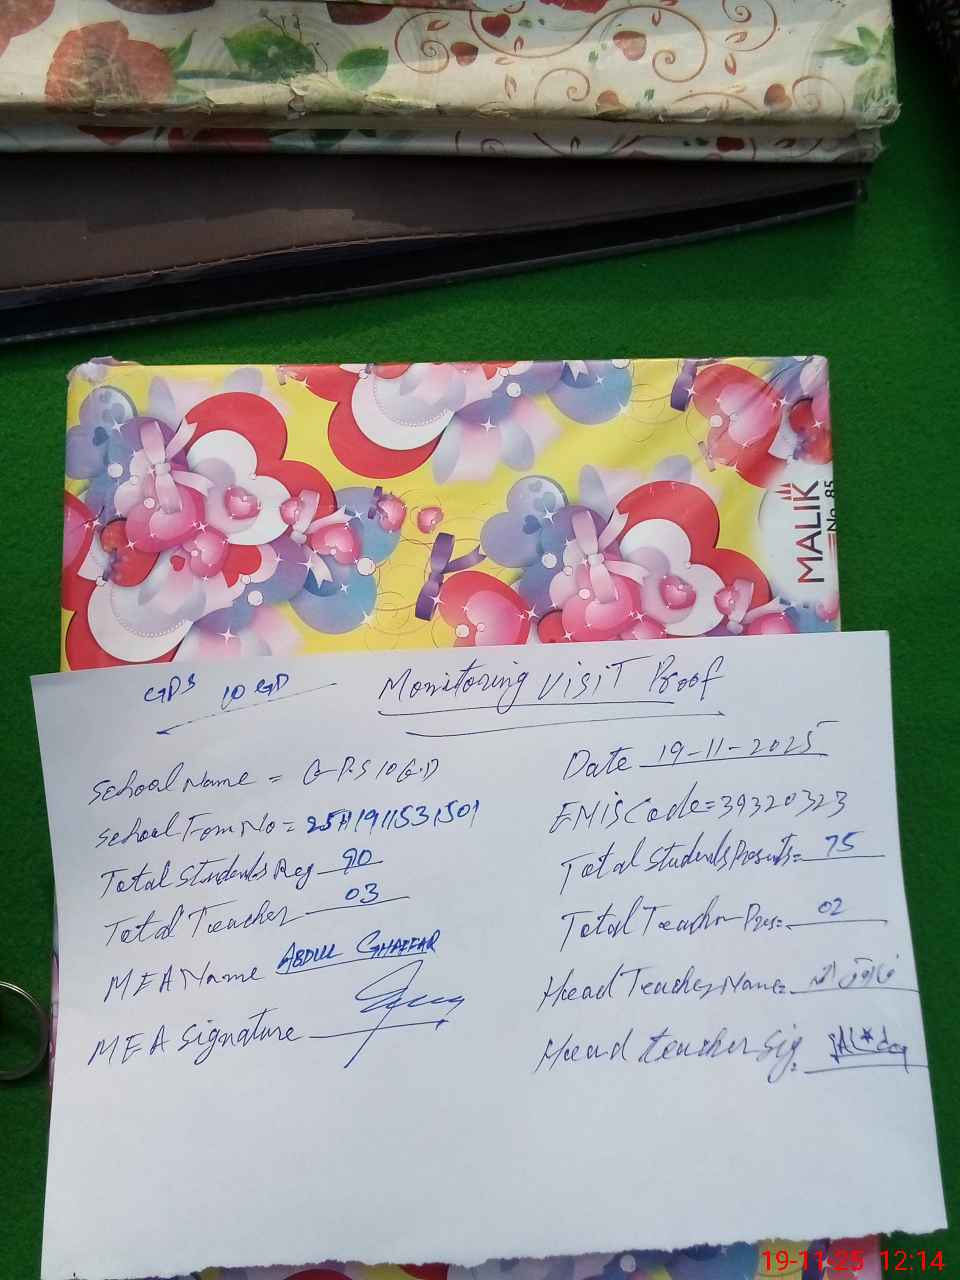 MALIK
No. 85
GPS 10 GD Monitoring Visit Proof
School Name = G.P.S 10 G.D
Date 19-11-2025
School Form No =
EMIS Code = 39320323
Total Students Reg 90
Total Students Presents = 75
Total Teacher 03
Total Teacher Pres = 02
MEA Name ABDUL GHAFFAR
Head Teacher Name =
MEA Signature
Head teacher Sig
19-11-25 12:14